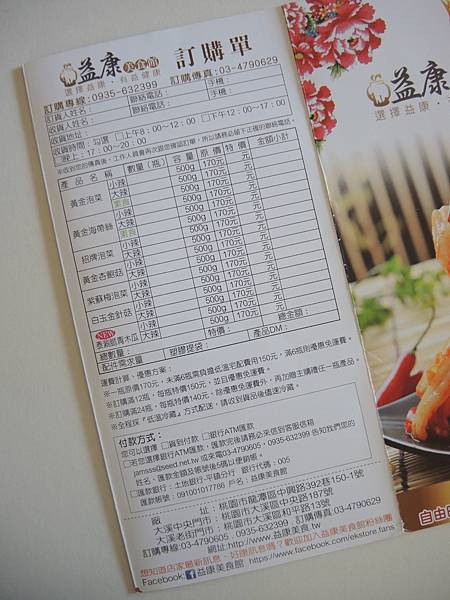 益康美食館
選擇益康‧有益健康
訂購單
訂購專線:0935-632399 訂購傳真:03-4790629
訂貨人姓名: 聯絡電話: 手機:
收貨人姓名: 聯絡電話: 手機:
收貨地址:
收貨時間:勾選 □上午8:00~12:00 □下午12:00~17:00
□晚上:17:00~20:00
產品名稱 數量(瓶) 容量 原價 特價 金額小計
黃金泡菜 小辣 500g 170元 元
大辣 500g 170元 元
素食 500g 170元 元
黃金海帶絲 小辣 500g 170元 元
大辣 500g 170元 元
素食 500g 170元 元
招牌泡菜 小辣 500g 170元 元
大辣 500g 170元 元
黃金杏鮑菇 小辣 500g 170元 元
大辣 500g 170元 元
紫蘇梅泡菜 小辣 500g 170元 元
大辣 500g 170元 元
白玉金針菇 小辣 500g 170元 元
大辣 500g 170元 元
NEW
青木瓜 小辣 500g 170元 元
大辣 500g 170元 元
總數量: 特價: 總金額:
配件需求量 塑膠提袋: 產品DM:
運費計算、優惠方案:
※一瓶原價170元,未滿6瓶需負擔低溫宅配費用150元,滿6瓶則優惠免運費。
※訂購滿12瓶,每瓶特價150元,並且優惠免運費。
※訂購滿24瓶,每瓶特價140元,除優惠免運費外,再加贈主購禮任一瓶產品。
※全程採『低溫冷藏』方式配送,請收到貨品後儘速冷藏。
付款方式:
您可以選擇 □貨到付款 □銀行ATM匯款
□若您選擇銀行ATM匯款,匯款後請務必來信到客服信箱
jamiss@seed.net.tw 或來電03-4790605、0935-632399 告知我們您的
姓名、匯款金額及帳號後5碼以便銷帳。
□匯款銀行:土地銀行-平鎮分行 銀行代碼:005
匯款帳號:091001017786 戶名:益康美食館
廠 址:桃園市龍潭區中興路392巷150-1號
大溪中央門市:桃園市大溪區中央路187號
大溪老街門市:桃園市大溪區和平路13號
訂購專線:03-4790605、0935-632399 訂購傳真:03-4790629
網址:http://www.益康美食.tw
想知道店家最新訊息、好康訊息嗎?歡迎加入益康美食館粉絲團
Facebook: 益康美食館 https://www.facebook.com/ekstore.fans
益康
選擇益康‧
自由